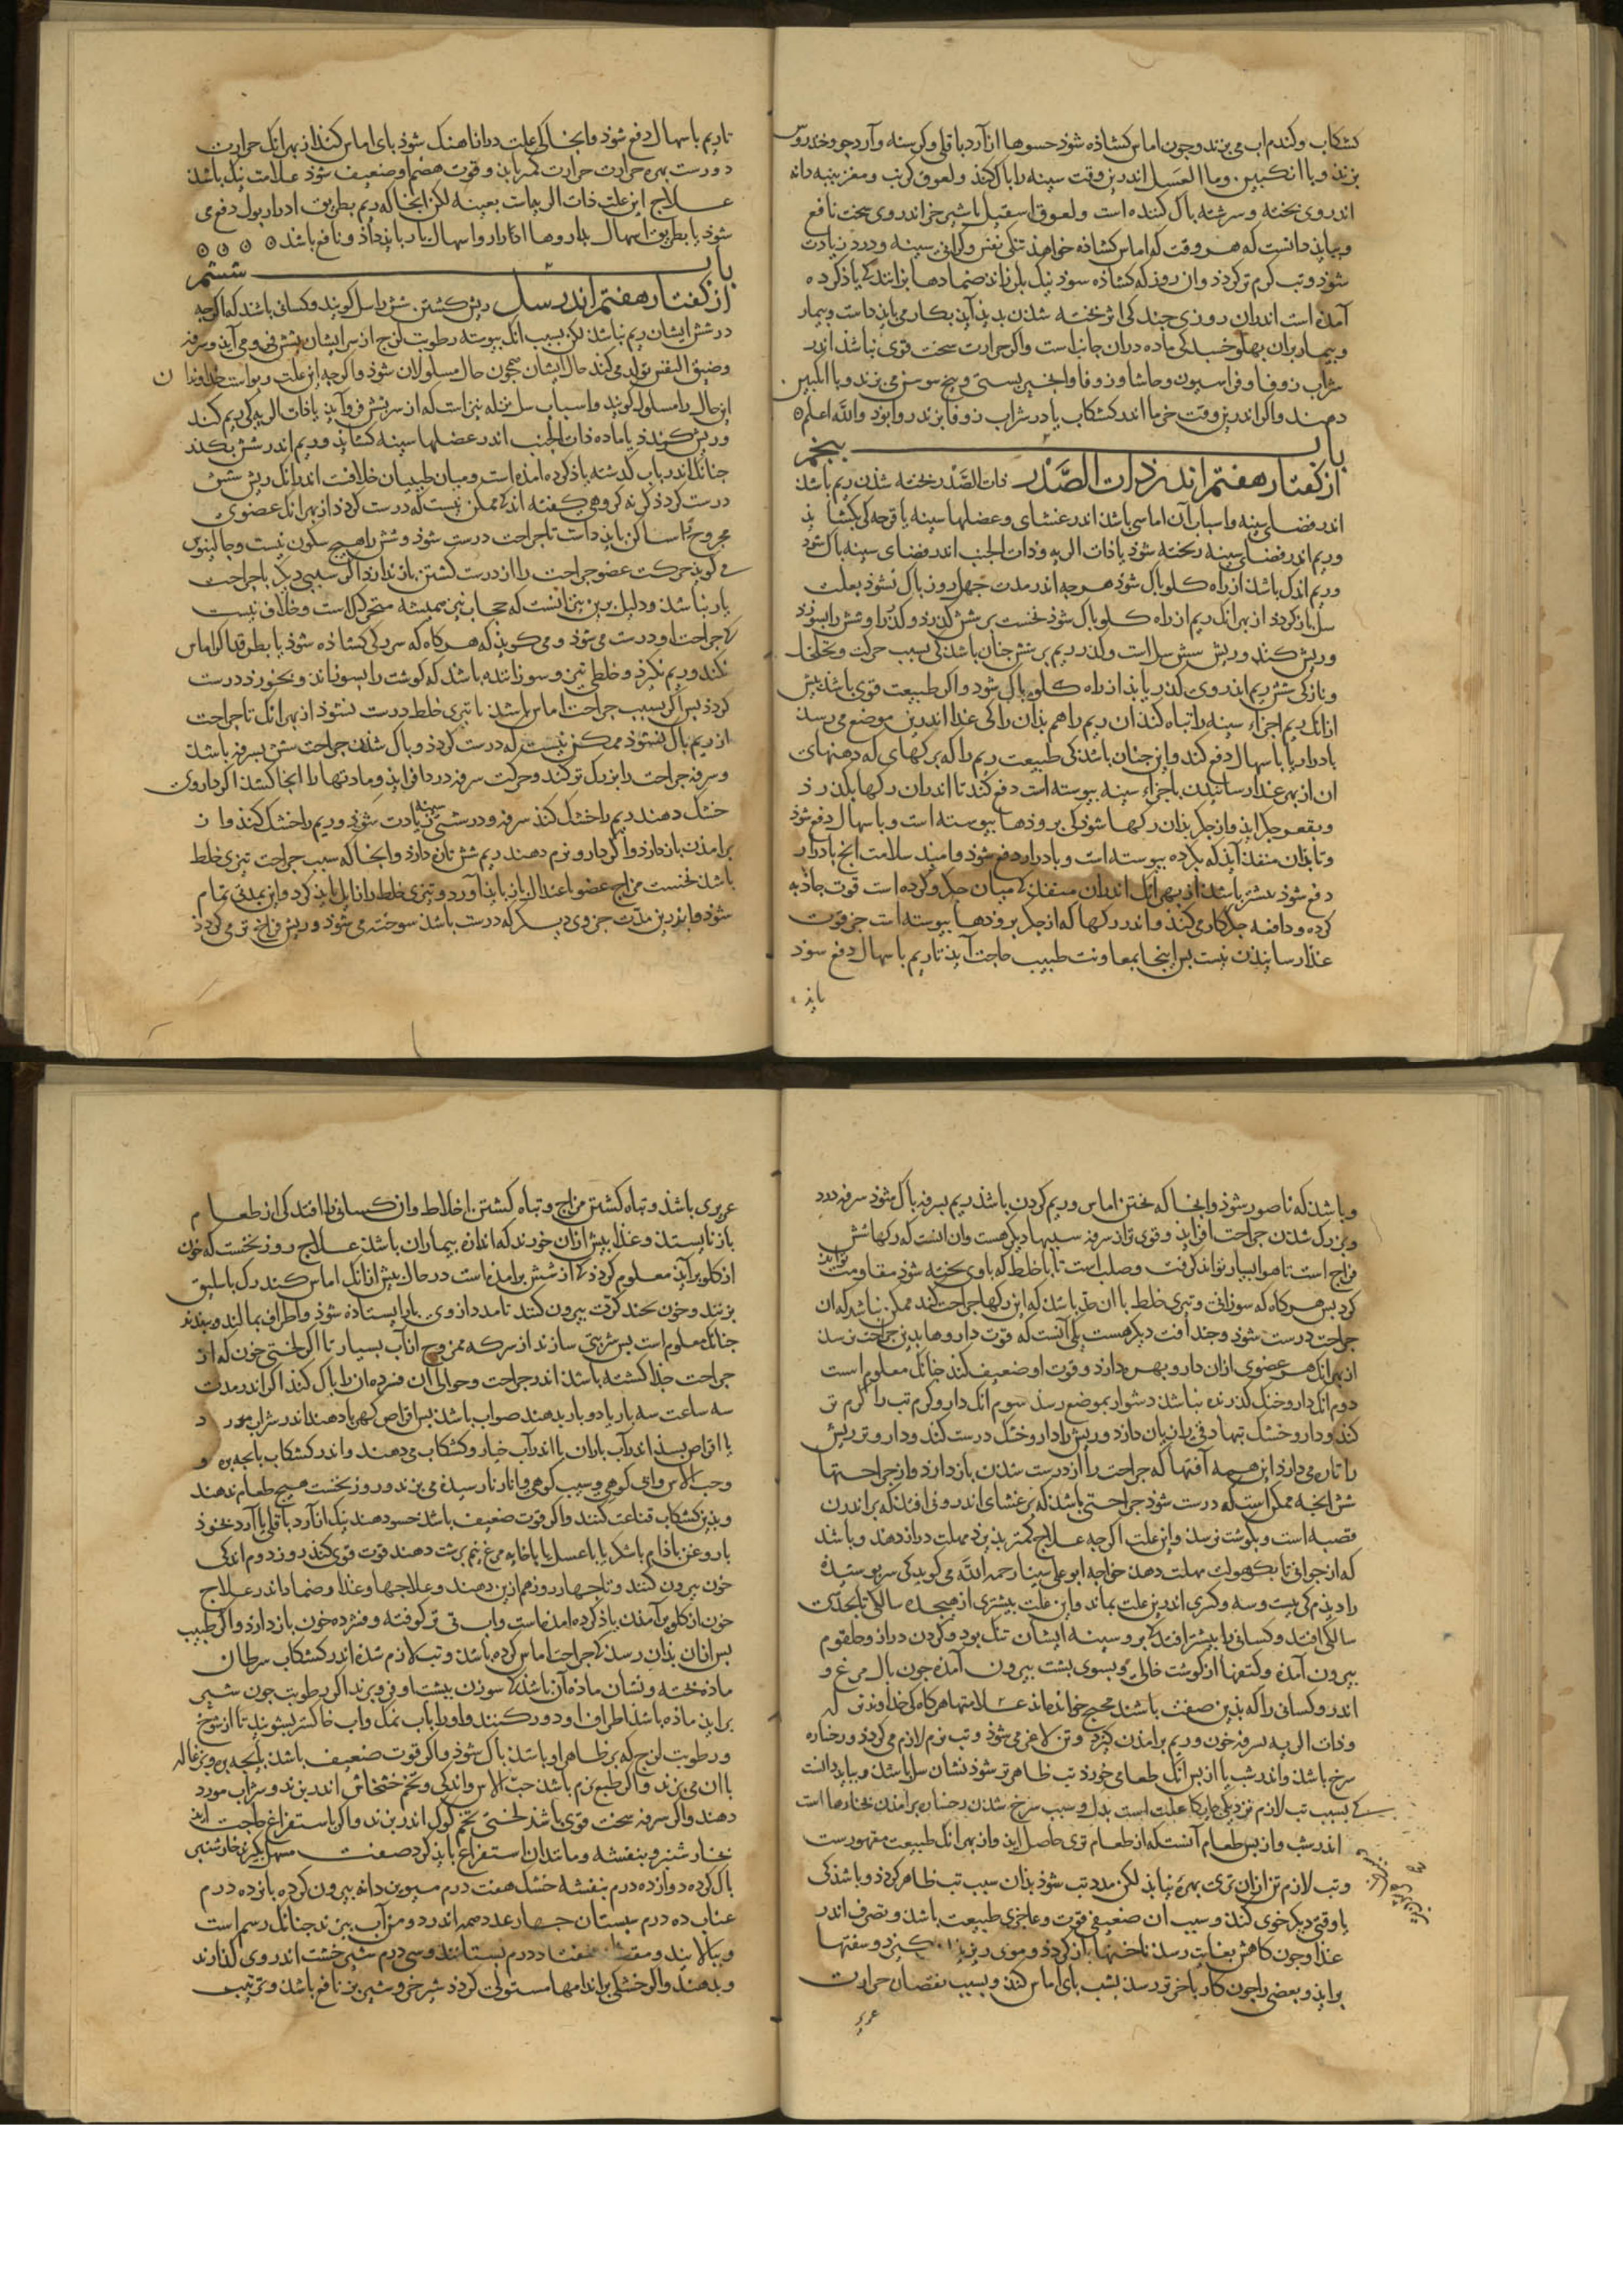 کشکاب وکندم اب می بزند وجون اماس کشاذه شوذ حسوها از آرد باقلی وکرسنه وآرد جو وخندروس
بزند وبا انکبین وما العسل اندرین وقت سینه را باک کند ولعوق کرنب ومغز بنبه دانه
اندروی بخته وسرشته باک کننده است ولعوق اسقیل با شیر خر اندروی سخت نافع
وبباید دانست که هر وقت که اماس کشاذه خواهذ شد تنکی نفس وکرانی سینه ودرد زیادت
شوذ وتب کرم تر کردذ وان روز که کشاذه شوذ نیک بلرزاند ضمادها برانند که یاذ کرده
آمذه است اندران روزی چند کی اثر بخته شذن بدید آید بکار می باید داشت وبیمار
وبیمار بران بهلو خسبد کی ماده دران جانب است واکر حرارت سخت قوی نباشذ اندر
شراب زوفا وفراسیون وحاشا وزوفا وانجیر بستی وبیخ سوسن می بزند وبا انکبین
دهند واکر اندرین وقت خرما اندر کشکاب یا در شراب زوفا بزند روا بوذ والله اعلم
باب بنجم
از کفتار هفتم اندر ذات الصدر ذات الصدر بخته شذن ریم باشذ
اندر فضای سینه واسباب آن اماسی باشذ اندر غشای وعضلها سینه یا قرحه کی بکشایذ
وریم اندر فضای سینه ریخته شوذ یا ذات الریه وذات الجنب اندر فضای سینه باک شوذ
وریم اندک باشذ از راه کلو باک شوذ هر چه اندر مدت چهل روز باک نشوذ بعلت
سل باز کردذ از بهر انک ریم از راه کلو باک شوذ نخست بر شش کذرد وکذر او شش را بسوزد
وریش کند وریش شش سل است وکذر ریم بر شش جنان باشذ کی بسبب حرکت وتخلخل
ونازکی شش ریم اندروی کذر یابذ از راه کلو باک شود واکر طبیعت قوی باشذ بیش
ازانک ریم اجزاء سینه را تباه کند ان ریم را هم بذان راه کی غذا اندرین موضع می رسذ
بادرار یا باسهال دفع کند واین جنان باشذ کی طبیعت ریم را که برکهای که دهنهای
ان از بهر غذا رسانیذن باجزاء سینه بیوسته است دفع کند تا اندران رکها بکذرذ
وبقعر جکر ایذ واز جکر بذان رکها شوذ کی بروذها بیوسته است وباسهال دفع شوذ
وتا بذان منفذ آیذ که بکرده بیوسته است وبادرار دفع شوذ وامید سلامت انج بادرار
دفع شوذ بیشتر باشذ از بهر انک اندران منفذ که میان جکر وکرده است قوت جاذبه
کرده ودافعه جکر کار می کنذ واندر رکها که از جکر بروذها بیوسته است جز قوت
غذا رسانیذن نیست بس اینجا بمعاونت طبیب حاجت آیذ تا ریم باسهال دفع شوذ
تا ریم باسهال دفع شوذ وانجا کی علت درانا هنک شوذ بای اماس کنذ از بهر انک حرارت
دورست بهره حرارت حرارت کمتر یابذ وقوت هضم او ضعیف شوذ علامت نیک باشذ
علاج این علت ذات الریه است بعینه لکن انجا که ریم بطریق ادرار بول دفع می
شوذ یا بطریق اسهال بداروها ادرار واسهال یاری باید داذ ونافع باشذ
باب ششم
از کفتار هفتم اندر سل ریش کشتن شش را سل کویند وکسانی باشند که اکرچه
در شش ایشان ریم نباشذ لکن بسبب انک بیوسته رطوبت لزج از سر ایشان بشش فرو می آید وسرفه
وضیق النفس تولد می کند حال ایشان همچون حال مسلولان شوذ واکرچه این علت ربو است خداوند ان
این حال را مسلول کویند واسباب سل نزله تیز است که از سر بشش فروآید یا ذات الریه کی ریم کند
وریش کردذ یا ماده ذات الجنب اندر عضلها سینه کشایذ وریم اندر شش بکند
جنانک اندر باب کذشته یاذ کرده امذه است ومیان طبیبان خلافست اندرانک ریش شش
درست کردذ کی نه کروهی کفته اند که ممکن نیست که درست کردذ از بهر انک عضوی
مجروح را ساکن باید داشت تا جراحت درست شوذ وشش را هیچ سکون نیست وجالینوس
می کوید حرکت عضو جراحت را از درست کشتن باز ندارذ اکر سببی دیکر با جراحت
یار نباشذ ودلیل برین آنست که حجاب نیز همیشه متحرک است وخلاف نیست
که جراحت او درست می شوذ ومی کویند که هرکاه که سرریکی کشاذه شوذ یا بطرقد اکر اماس
نکند وریم نکیرذ وخلط تیز وسوزاننده نباشذ که کوشت را بسوزاند وبخورد درست
کردذ بس اکر بسبب جراحت اماس باشذ یا تیزی خلط درست نشوذ از بهر انک تا جراحت
از ریم باک نشوذ ممکن نیست که درست کردذ وباک شذن جراحت شش بسرفه باشذ
وسرفه جراحت را بزرک تر کند وحرکت سرفه درد افزایذ ومادتها را انجا کشذ اکر داروی
خشک دهند ریم را خشک کند سرفه ودرشتی سینه زیادت شوذ وریم را خشک کند وان
برامذن باز دارذ واکر دارو نرم دهند ریم شش تازه دارذ وانجا که سبب جراحت تیزی خلط
باشذ نخست مزاج عضو باعتدال باز باید آورد وتیزی خلط را زایل باید کرد واین بمدتی تمام
شوذ واندرین مدت جزوی دیکر که درست باشذ سوخته می شوذ وریش فراخ تر می کردذ
وباشذ که ناصور شوذ وانجا که بختن اماس وریم کردن باشذ ریم بسرفه باک شوذ سرفه درد
وبزرک شذن جراحت افزایذ وقوی تر از سرفه سببها دیکر هست وان انست که رکهای شش
فراخ است تا هوا بسیار تواند کرفت وصلب است تا با خلط که با وی بخته شوذ مقاومت تواند
کرد بس هرکاه که سوزانی وتیزی خلط با ان حد باشذ که این رکها جراحت کند ممکن نباشذ که ان
جراحت درست شوذ وچند آفت دیکر هست یکی آنست که قوت داروها بدین جراحت نرسذ
از بهر انک هر عضوی ازان دارو بهره دارذ وقوت او ضعیف کند جنانک معلوم است
دوم انک دارو خنک کذرنده نباشذ دشوار بموضع رسذ سوم انک دارو کرم تب را کرم تر
کند ودارو خشک تبها دق را زیان دارذ وریش را دارو خشک درست کند ودارو تر ریش
را تازه می دارذ این همه آفتها که جراحت را از درست شذن باز دارذ واز جراحتها
شش انچه ممکن است که درست شوذ جراحتی باشذ که بر غشای اندرونی افتذ که بر اندرون
قصبه است وبکوشت نرسذ واین علت اکرچه علاج کمتر بذیرذ مهلت دراز دهذ وباشذ
که از جوانی تا بکهولت مهلت دهذ خواجه ابو علی سینا رحمه الله می کوید کی سر بوشیذه
را دیذم کی بیست وسه وکسری اندرین علت بماند واین علت بیشتری از هیجده سالکی تا بحد سی
سالکی افتد وکسانی را بیشتر افتد که بر وسینه ایشان تنک بود وکردن دراز وحلقوم
بیرون آمذه وکتفها از کوشت خالی وبسوی بشت بیرون آمذه جون بال مرغ و
اندر وکسانی را که بذین صفت باشند مجنح خوانده اند علامتها هرکاه کی خداوند تن
وذات الریه بسرفه خون وریم برامذن کیرد وتن لاغر می شوذ وتب نرم لازم می کردذ ورخساره
سرخ باشذ واندر شب یا از بس انک طعامی خورذ تب ظاهرتر شوذ نشان سل باشذ وبباید دانست
کی بسبب تب لازم نزدیکی جایکاه علت است بدل وسبب سرخ شذن رخساره برامذن بخارها است
اندر شب واز بس طعام آنست که از طعام تری حاصل ایذ واز بهر انک طبیعت مقهورست
وتب لازم تن ازان تری بهره نیابذ لکن مدد تب شوذ بذان سبب تب ظاهر کردذ وباشذ کی
یا وقتی دیکر خوی کنذ وسبب ان ضعیفی قوت وعاجزی طبیعت باشذ وتصرف اندر
غذا وجون کاهش بغایت رسذ ناخنها باز کردذ وموی ریزیدن کیرد وسفتها
برایذ وبعضی را جون کار باخر تر رسذ بشت بای اماس کنذ وبسبب نقصان حرارت
غریزی باشذ وتباه کشتن مزاج وتباه کشتن اخلاط وان کسانی را افتد کی از طعام
باز نایستند وغذا بیش ازان خورند که اندازه بیماران باشذ علاج روز نخست که خون
از کلو برآیذ معلوم کردذ که از شش برامذه است در حال بیش ازانک اماس کند رک باسلیق
بزنند وخون بجند کرت بیرون کنند تا مدد از وی باز ایستاذه شوذ واطراف بمالند وببندند
جنانک معلوم است بس شربتی سازند از سرکه ممزوج از آب بسیار تا اکر لختی خون که از
جراحت جذا کشته باشذ اندر جراحت وحوالی آن فسرده ان را باک کند اکر اندر مدت
سه ساعت سه بار یا دو بار بدهند صواب باشذ بس اقراص کهربا دهند اندر شراب مورد
یا اقراص بسذ اندر آب باران یا اندر آب خیار وکشکاب می دهند واندر کشکاب بابچه بره و
وحب الاس وابی کوهی وسیب کوهی وانار نارسیده می بزند وروز نخست هیچ طعام ندهند
وبدین کشکاب قناعت کنند واکر قوت ضعیف باشذ حسو دهند نیک از آرد باقلی یا آرد نخود
با روغن باذام با شکر یا با عسل یا با خایه مرغ نیم برشت دهند قوت قوی کند روز دوم اندکی
خون بیرون کنند وتا چهار روز هم ازین دهند وعلاجها وغذا وضماد اندر علاج
خون از کلو برآمذن یاذ کرده امذه است واب تی تر کوفته وفشرده خون باز دارذ واکر طبیب
بس ازان بذان رسذ که جراحت اماس کرده باشذ وتب لازم شذه اندر کشکاب سرطان
ماده بخته ونشان ماده آن باشذ که سوزن ببشت او فرو برند اکر رطوبت جون شیر
برایذ ماذه باشذ اطراف او دور کنند واو را باب نمک واب خاکستر بشویند تا از شوخ
ورطوبت لزج که بر ظاهر او باشذ باک شوذ واکر قوت ضعیف باشذ بابچه بره وبزغاله
با ان می بزند واکر طبع نرم باشذ حب الاس واندکی وتخم خشخاش اندر بزند وشراب مورد
دهند واکر سرفه سخت قوی باشذ لختی تخم کوک اندر بزند واکر باستفراغ حاجت اید
بخیار شنبر وبنفشه ومانند ان استفراغ باید کرد صفت مسهل بکیرند خیار شنبر
باک کرده دوازده درم بنفشه خشک هفت درم میویز دانه بیرون کرده بانزده درم
عناب ده درم سبستان چهار عدد همه اندر دو من آب ببزند جنانک رسم است
وببالایند ومقدار هشتاد درم بستانند وسی درم شیر خشت اندر وی کذارند
وبدهند واکر خشکی بر اندامها مستولی کردذ شیر خر وشیر بز نافع باشذ وترتیب